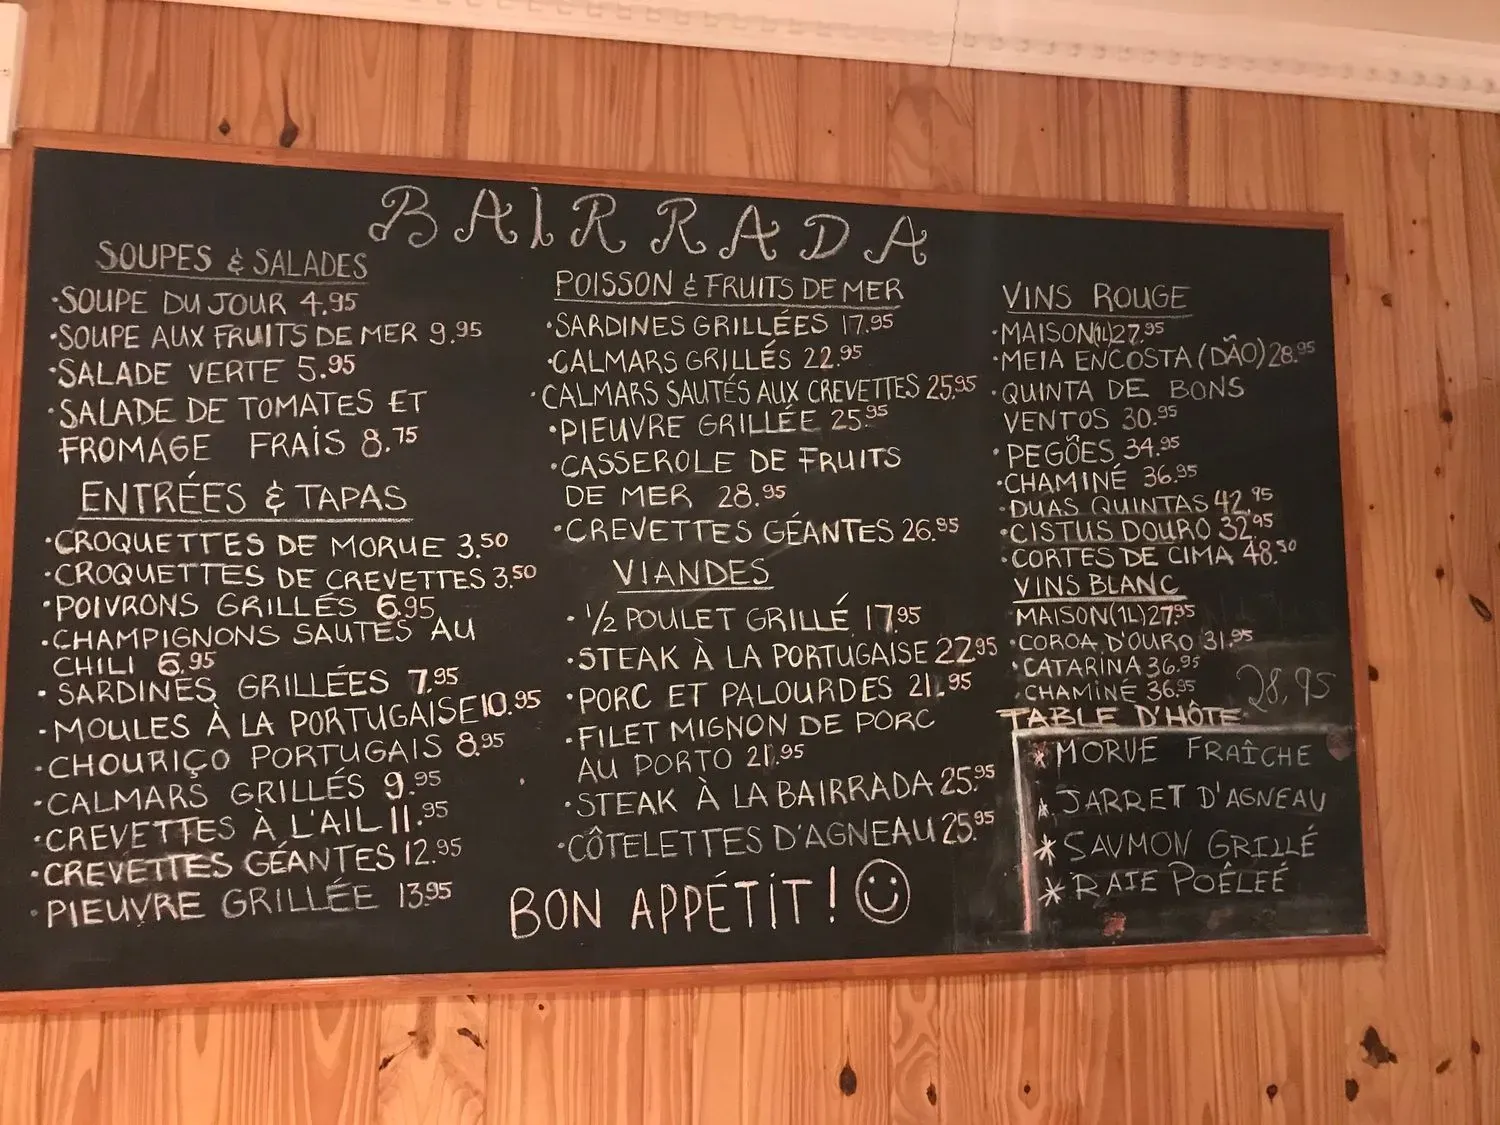 BAIRRADA
SOUPES & SALADES
·SOUPE DU JOUR 4.95
·SOUPE AUX FRUITS DE MER 9.95
·SALADE VERTE 5.95
·SALADE DE TOMATES ET
FROMAGE FRAIS 8.75
ENTRÉES & TAPAS
·CROQUETTES DE MORUE 3.50
·CROQUETTES DE CREVETTES 3.50
·POIVRONS GRILLÉS 6.95
·CHAMPIGNONS SAUTÉS AU
CHILI 6.95
·SARDINES GRILLÉES 7.95
·MOULES À LA PORTUGAISE 10.95
·CHOURIÇO PORTUGAIS 8.95
·CALMARS GRILLÉS 9.95
·CREVETTES À L'AIL 11.95
·CREVETTES GÉANTES 12.95
·PIEUVRE GRILLÉE 13.95
POISSON & FRUITS DE MER
·SARDINES GRILLÉES 17.95
·CALMARS GRILLÉS 22.95
·CALMARS SAUTÉS AUX CREVETTES 25.95
·PIEUVRE GRILLÉE 25.95
·CASSEROLE DE FRUITS
DE MER 28.95
·CREVETTES GÉANTES 26.95
VIANDES
·1/2 POULET GRILLÉ 17.95
·STEAK À LA PORTUGAISE 22.95
·PORC ET PALOURDES 21.95
·FILET MIGNON DE PORC
AU PORTO 21.95
·STEAK À LA BAIRRADA 25.95
·CÔTELETTES D'AGNEAU 25.95
BON APPÉTIT!
VINS ROUGE
·MAISON(1L) 27.95
·MEIA ENCOSTA (DÃO) 28.95
·QUINTA DE BONS
VENTOS 30.95
·PEGÕES 34.95
·CHAMINÉ 36.95
·DUAS QUINTAS 42.95
·CISTUS DOURO 32.95
·CORTES DE CIMA 48.50
VINS BLANC
·MAISON(1L) 27.95
·COROA D'OURO 31.95
·CATARINA 36.95
·CHAMINÉ 36.95
TABLE D'HÔTE 28,95
*MORUE FRAÎCHE
*JARRET D'AGNEAU
*SAUMON GRILLÉ
*RAIE POÊLEÉ